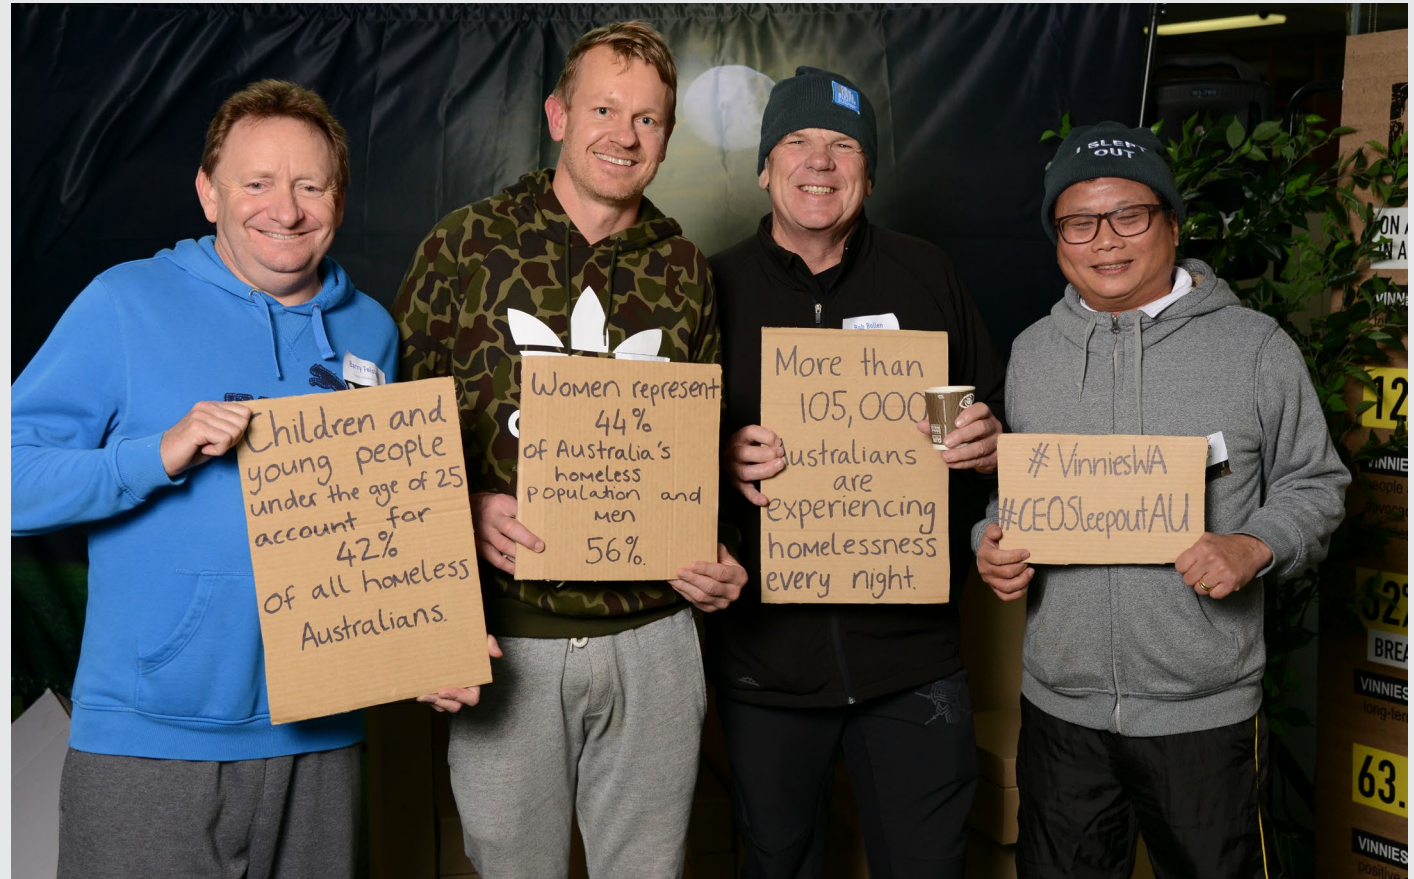 Children and
young people
under the age of 25
account for
42%
of all homeless
Australians.
Women represent
44%
of Australia's
homeless
population and
men
56%.
Rob Bollen
More than
105,000
Australians
are
experiencing
homelessness
every night.
I SLEPT
OUT
# VinniesWA
#CEOSleepoutAU
ON A
N A
VINN
12
VINNIE
eople
62%
BREA
VINNIES
long-ter
63.
VINNIES
positive